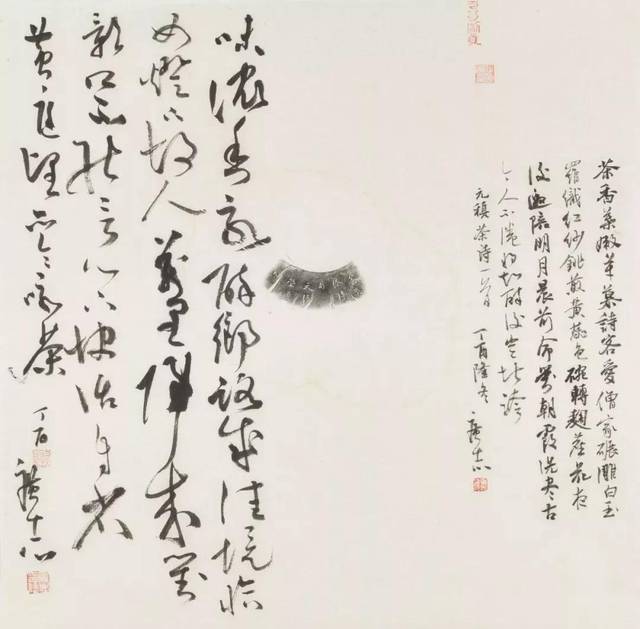 茶香葉嫩芽慕詩客愛僧家碾雕白玉
羅織紅紗銚煎黃蕊色碗轉麴塵花夜
後邀陪明月晨前命對朝霞洗盡古
今人不倦將知醉後豈堪誇
元稹茶詩一首 丁酉隆冬
味濃香永醉鄉路成佳境恰
如燈下故人萬里歸來對
影口不能言心下快活自省
黃庭堅品令詠茶
丁酉